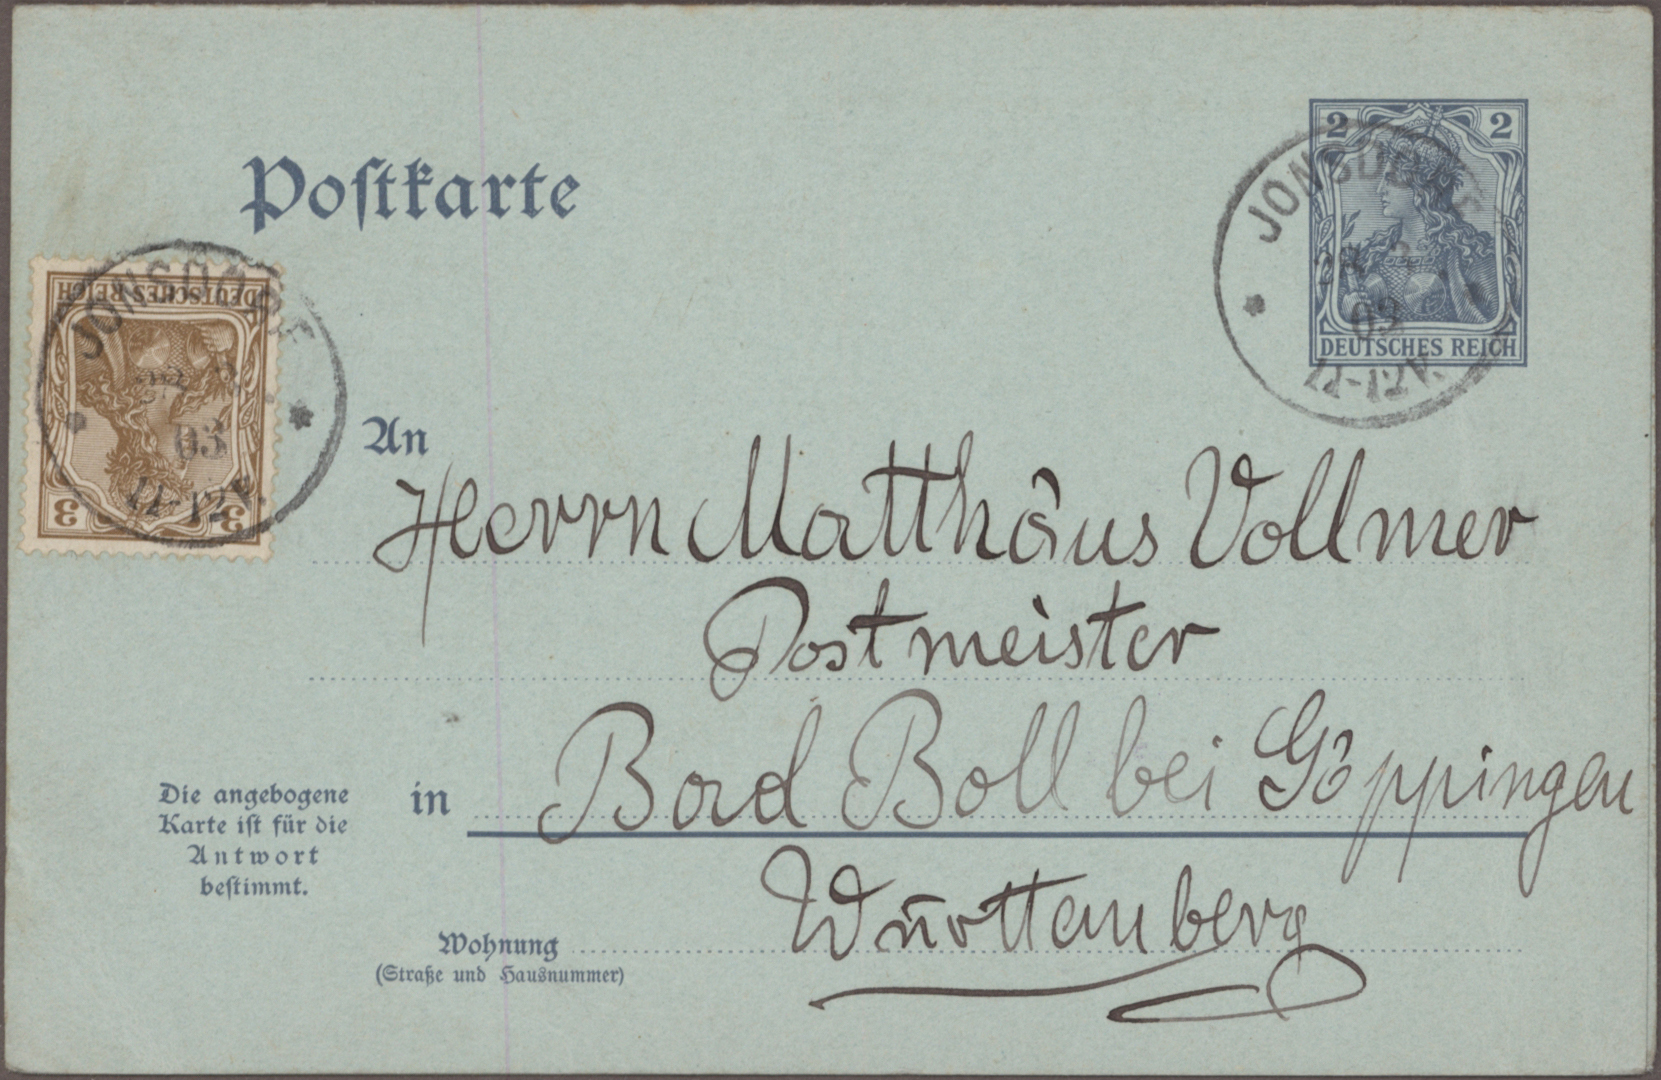 Postkarte
2 2
JONSDORF
03
DEUTSCHES REICH
11-12V.
DEUTSCHES REICH
3 3
JONSDORF
03
11-12V.
An
Herrn Matthäus Vollmer
Postmeister
in Bad Boll bei Göppingen
Württemberg
Die angebogene
Karte ist für die
Antwort
bestimmt.
Wohnung
(Straße und Hausnummer)